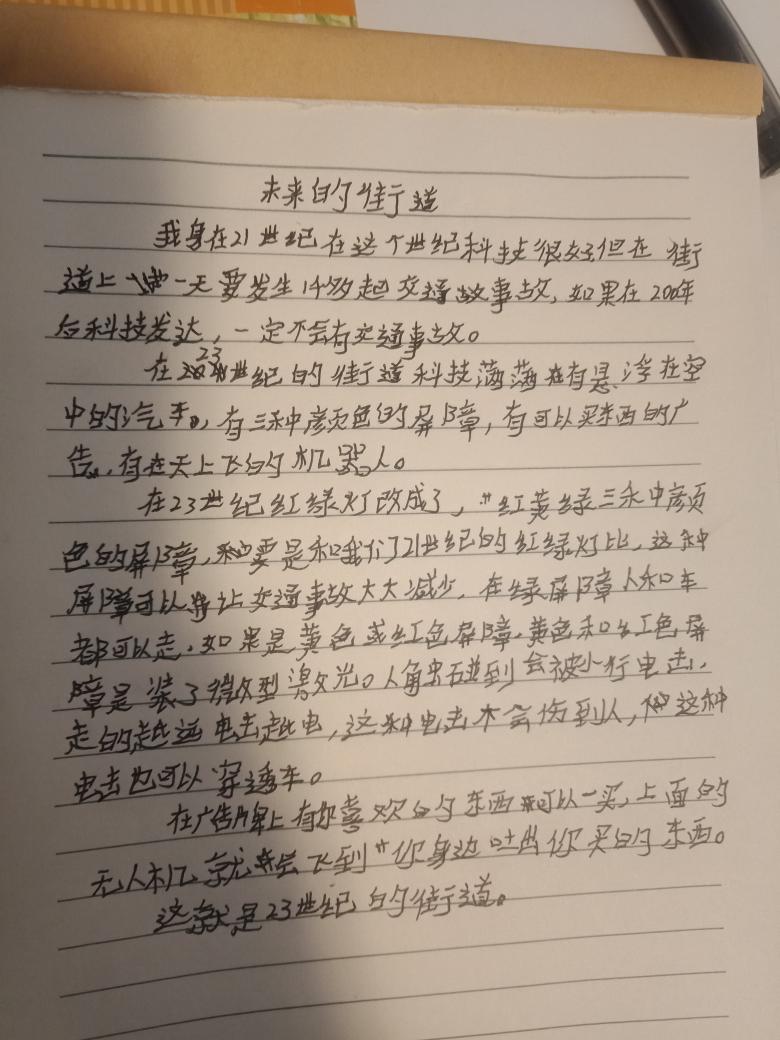 未来的街道
我身在21世纪在这个世纪科技很好但在街
道上一天要发生1千多起交通故事故,如果在200年
后科技发达,一定不会有交通事故。
在23世纪的街道科技满满在有悬浮在空
中的汽车,有三种颜色的屏障,有可以买东西的广
告,有在天上飞的机器人。
在23世纪红绿灯改成了,"红黄绿三种颜
色的屏障,要是和我们21世纪的红绿灯比,这种
屏障可以让交通事故大大减少,在绿屏障人和车
都可以走,如果是黄色或红色屏障,黄色和红色屏
障是装了微型激光。人触碰到会被小行电击,
走的越远电击越电,这种电击不会伤到人,这种
电击也可以穿透车。
在广告牌上有你喜欢的东西可以一买,上面的
无人机就会飞到"你身边吐出你买的东西。
这就是23世纪的街道。